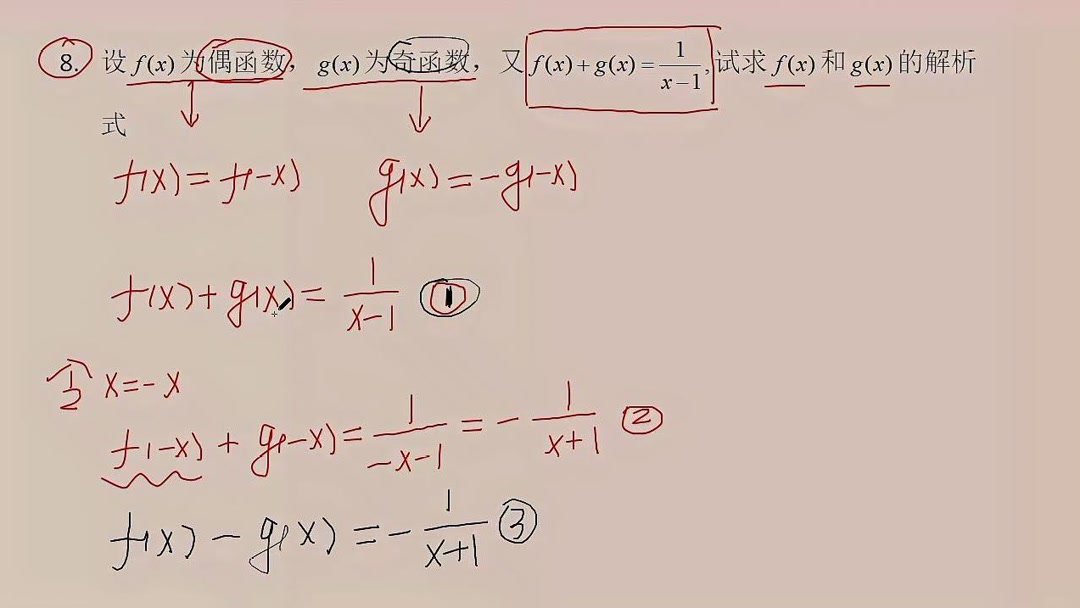 8. 设 f(x) 为偶函数，g(x) 为奇函数，又 f(x)+g(x)=1/(x-1), 试求 f(x) 和 g(x) 的解析
式
f(x)=f(-x) g(x)=-g(-x)
f(x)+g(x)=1/(x-1) ①
令 x=-x
f(-x)+g(-x)=1/(-x-1)=-1/(x+1) ②
f(x)-g(x)=-1/(x+1) ③